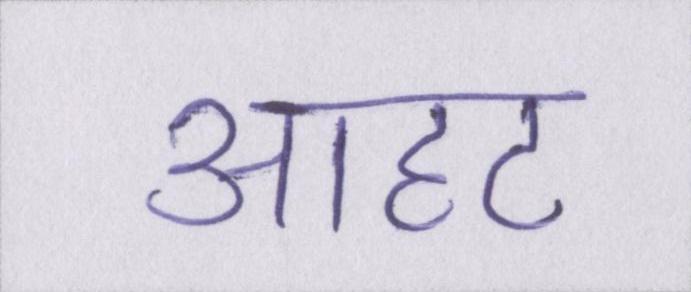 आहट